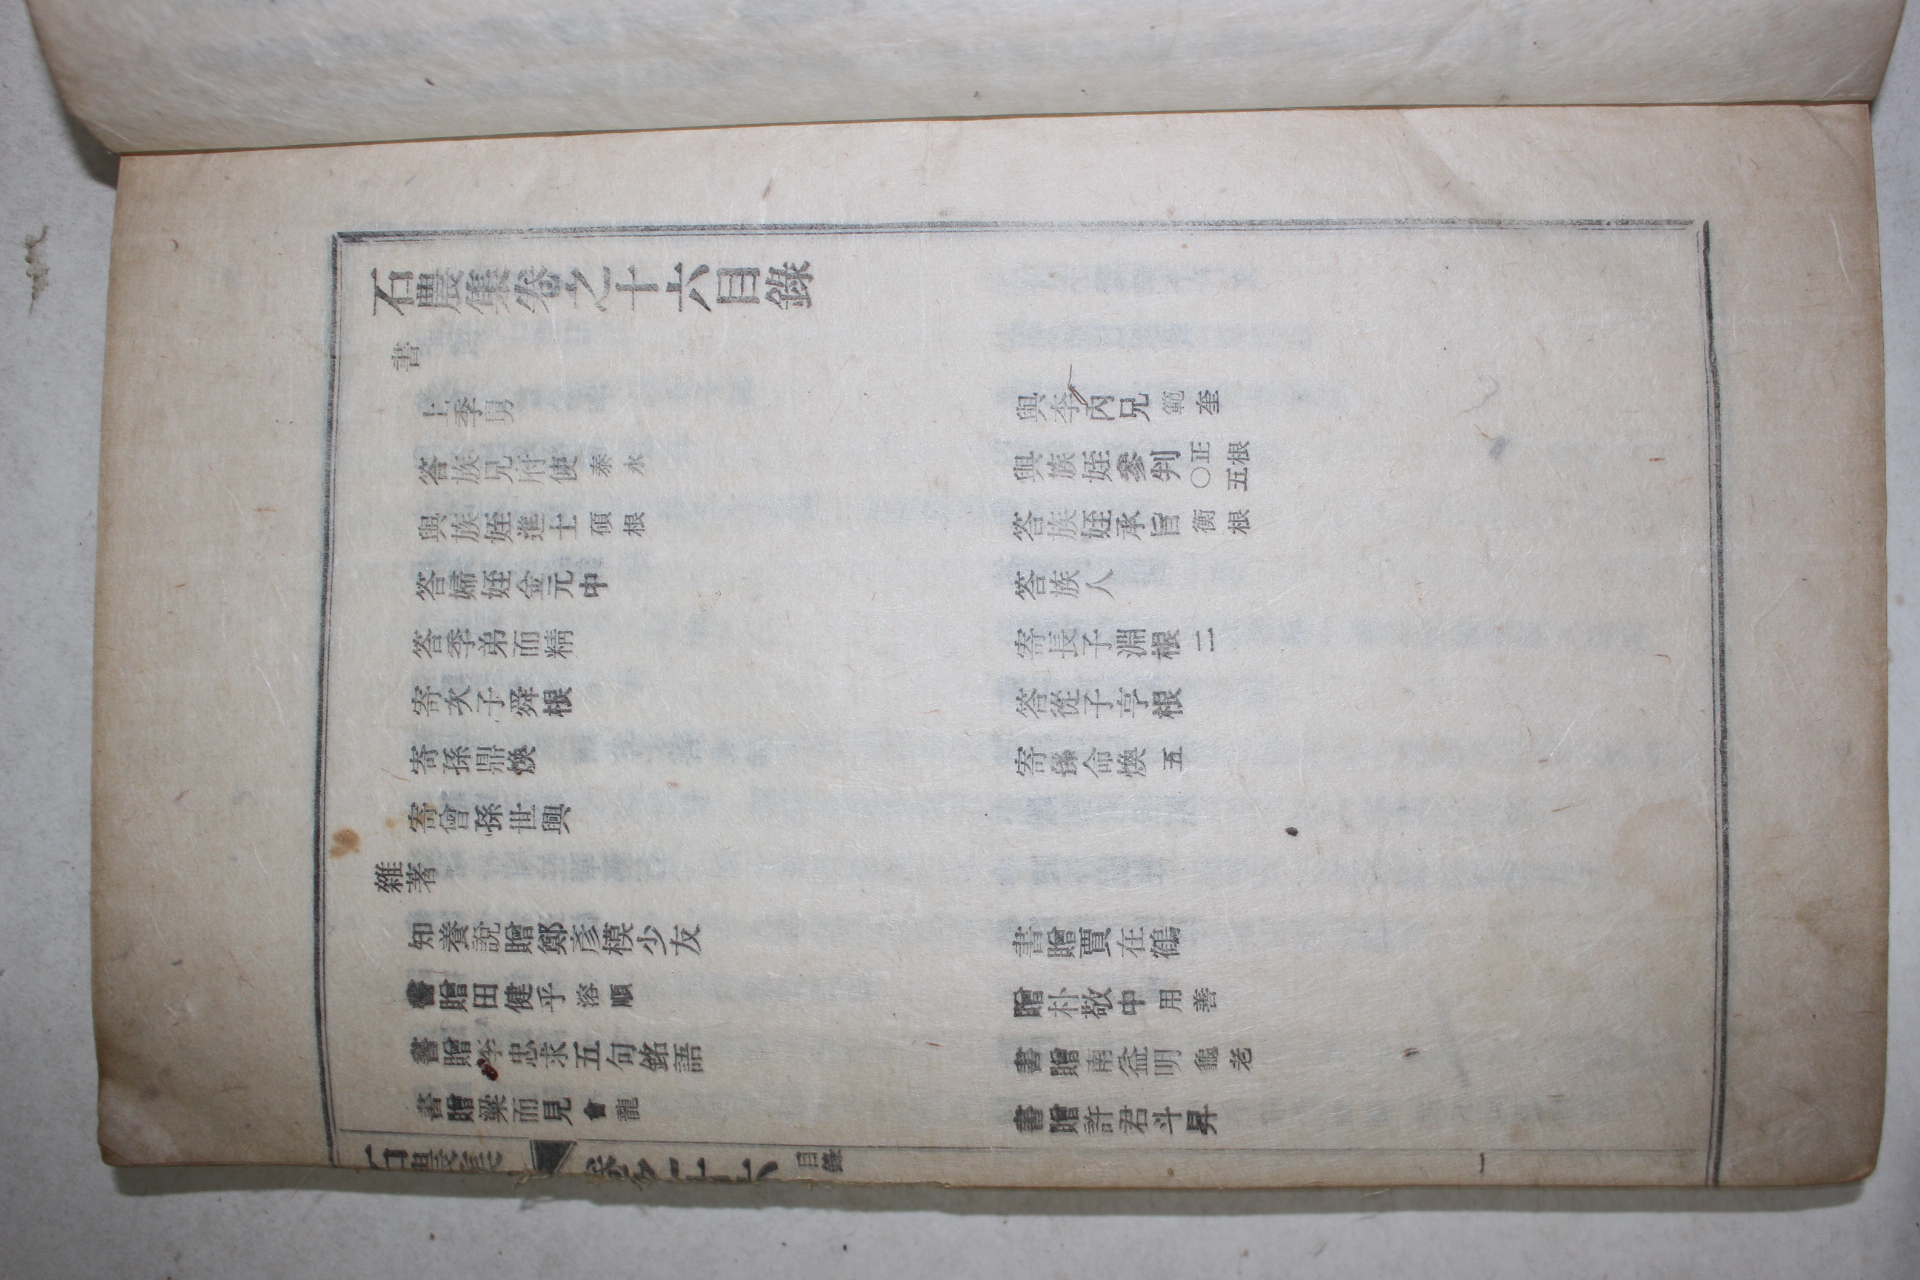 石農集卷之十六目錄
書
上季舅
與李內兄範奎
答族兄府使泰永
與族姪參判正根〇五
與族姪進士碩根
答族姪承旨衡根
答婦姪金元中
答族人
答季弟而精
寄長子淵根二
寄次子舜根
答從子亨根
寄孫鼎煥
寄孫命煥五
寄曾孫世興
雜著
知養說贈鄭彥模少友
書贈賈在鶴
書贈田健乎溶順
贈朴敬中用善
書贈李忠求五句銘語
書贈南益明龜老
書贈梁而見會龍
書贈許君斗昇
石農集 卷之十六 目錄 一